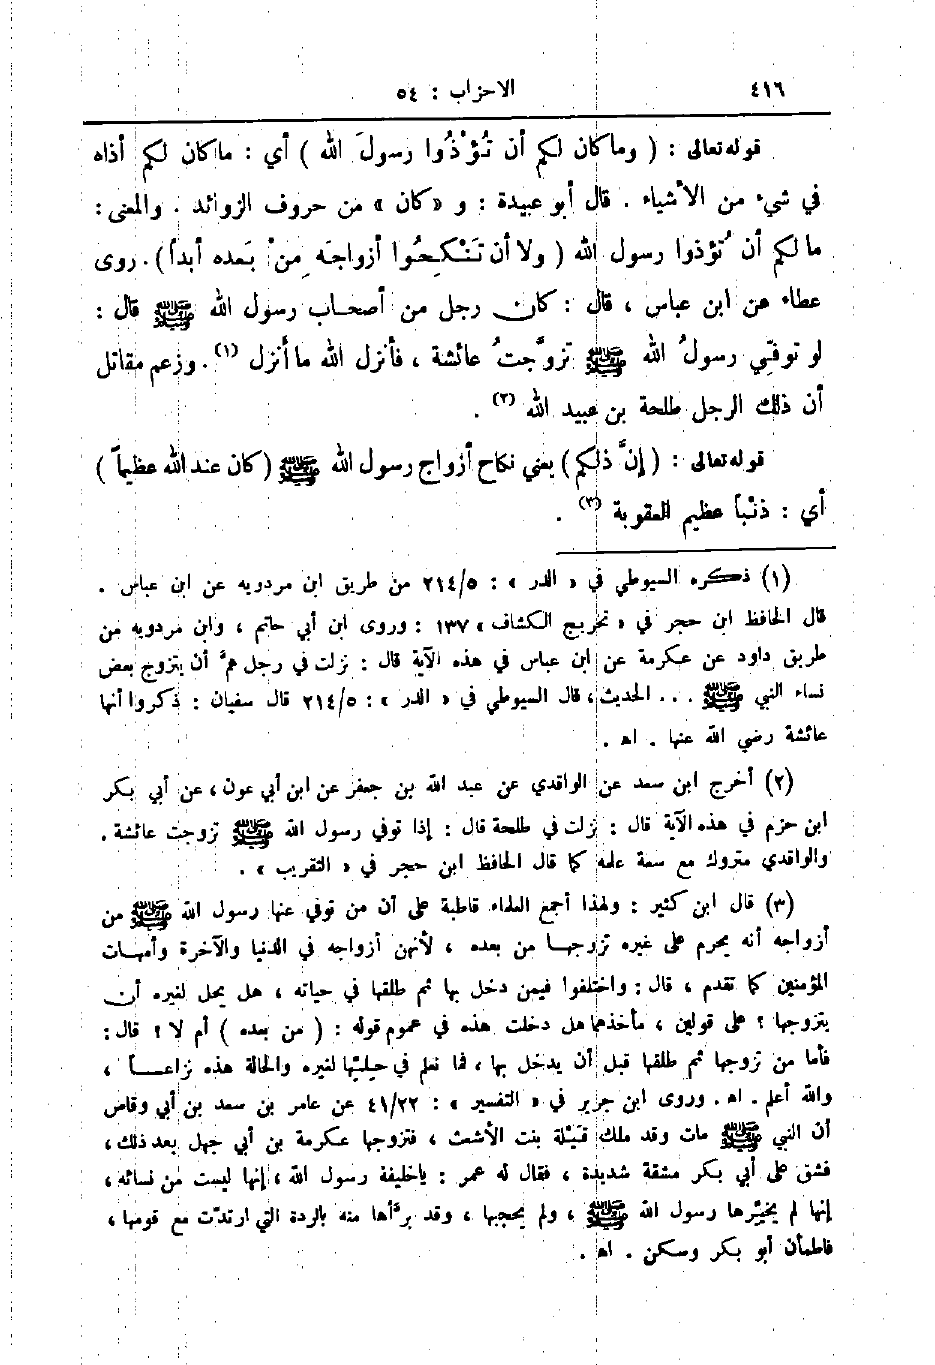 ٤١٦ الاحزاب : ٥٤
قوله تعالى : ( وما كان لكم أن تُؤْذُوا رسولَ الله ) أي : ما كان لكم أذاه
في شيء من الأشياء . قال أبو عبيدة : و « كان » من حروف الزوائد . والمعنى :
ما لكم أن تُؤذوا رسول الله ( ولا أن تَنْكِحُوا أزواجَه مِنْ بَعده أبداً ) . روى
عطاء عن ابن عباس ، قال : كان رجل من أصحاب رسول الله ﷺ قال :
لو توفّي رسولُ الله ﷺ تزوَّجتُ عائشة ، فأنزل الله ما أنزل (١) . وزعم مقاتل
أن ذلك الرجل طلحة بن عبيد الله (٢) .
قوله تعالى : ( إنَّ ذلكم ) يعني نكاح أزواج رسول الله ﷺ ( كان عند الله عظيماً )
أي : ذنْباً عظيم العقوبة (٣) .
(١) ذكره السيوطي في « الدر » : ٢١٤/٥ من طريق ابن مردويه عن ابن عباس .
قال الحافظ ابن حجر في « تخريج الكشاف » ١٣٧ : وروى ابن أبي حاتم ، وابن مردويه من
طريق داود عن عكرمة عن ابن عباس في هذه الآية قال : نزلت في رجل همَّ أن يتزوج بعض
نساء النبي ﷺ . . . الحديث ، قال السيوطي في « الدر » : ٢١٤/٥ قال سفيان : ذكروا أنها
عائشة رضي الله عنها . اه .
(٢) أخرج ابن سعد عن الواقدي عن عبد الله بن جعفر عن ابن أبي عون ، عن أبي بكر
ابن حزم في هذه الآية قال : نزلت في طلحة قال : إذا توفي رسول الله ﷺ تزوجت عائشة .
والواقدي متروك مع سعة علمه كما قال الحافظ ابن حجر في « التقريب » .
(٣) قال ابن كثير : ولهذا أجمع العلماء قاطبة على أن من توفي عنها رسول الله ﷺ من
أزواجه أنه يحرم على غيره تزوجها من بعده ، لأنهن أزواجه في الدنيا والآخرة وأمهات
المؤمنين كما تقدم ، قال : واختلفوا فيمن دخل بها ثم طلقها في حياته ، هل يحل لغيره أن
يتزوجها ؟ على قولين ، مأخذهما هل دخلت هذه في عموم قوله : ( من بعده ) أم لا ؟ قال :
فأما من تزوجها ثم طلقها قبل أن يدخل بها ، فما نعلم في حلِّيتها لغيره والحالة هذه نزاعاً ،
والله أعلم . اه . وروى ابن جرير في « التفسير » : ٤١/٢٢ عن عامر بن سعد بن أبي وقاص
أن النبي ﷺ مات وقد ملك قَيْلة بنت الأشعث ، فتزوجها عكرمة بن أبي جهل بعد ذلك ،
فشق على أبي بكر مشقة شديدة ، فقال له عمر : يا خليفة رسول الله ، إنها ليست من نسائه ،
إنها لم يخيِّرها رسول الله ﷺ ، ولم يحجبها ، وقد برَّأها منه بالردة التي ارتدّت مع قومها ،
فاطمأن أبو بكر وسكن . اه .